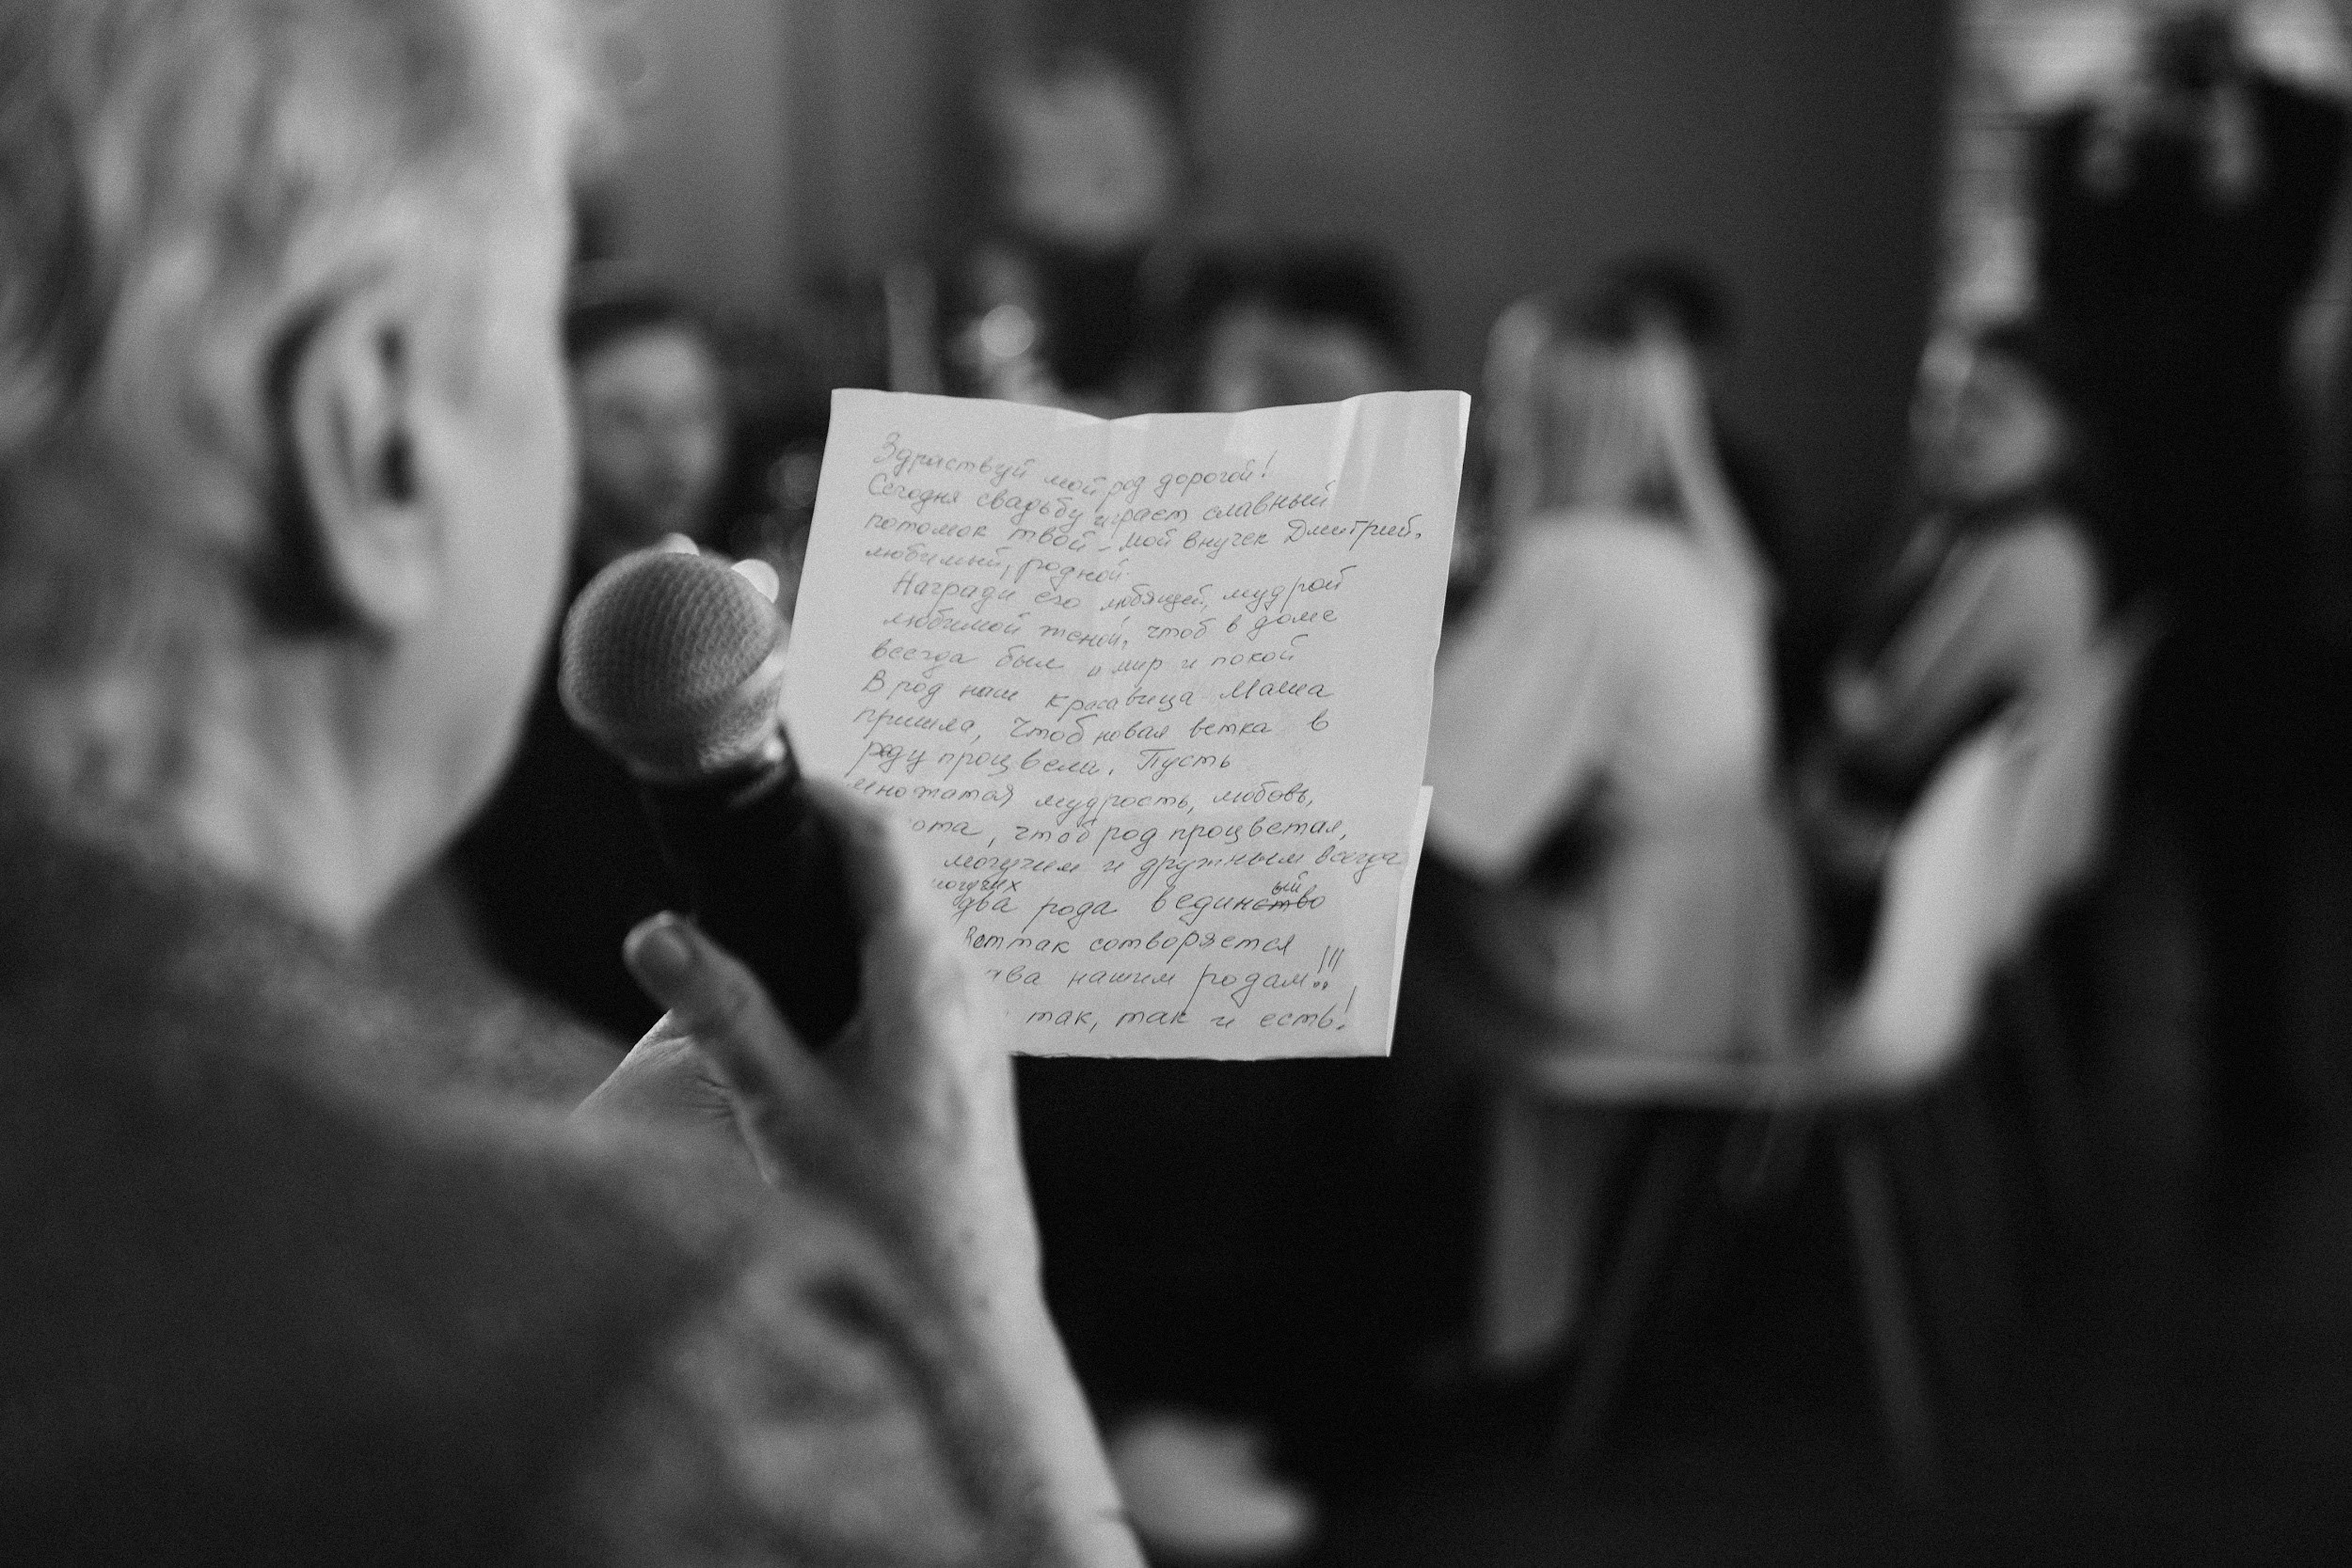 Здраствуй мой род дорогой!
Сегодня свадьбу играет славный
потомок твой – мой внучек Дмитрий,
любимый, родной.
Награди его любящей, мудрой
любимой женой, чтоб в доме
всегда был и мир и покой
В род наш красавица Маша
пришла, чтоб новая ветка в
роду процвела. Пусть
множатся мудрость, любовь,
ота, чтоб род процветал,
могучим и дружным всегда
могучих
два рода в единый
Вот так сотворяется
нашим родам!!!
так, так и есть!